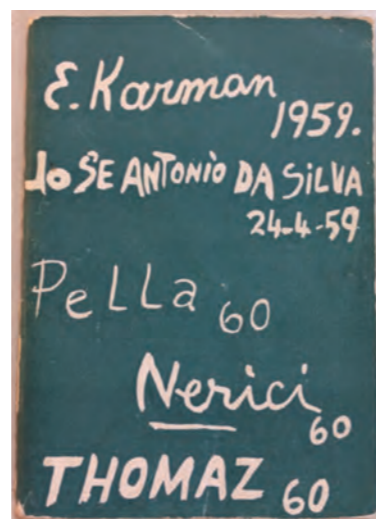 E. Karman
1959.
JoSE ANToNio DA SiLVA
24-4-59
PeLLa 60
Nerici
60
THOMAZ 60